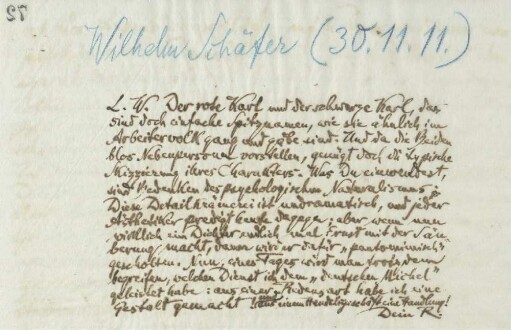 Wilhelm Schäfer (30.11.11.)
L. W. Der rote Karl und der schwarze Karl, das
sind doch einfache Spitznamen, wie sie ähnlich im
Arbeitervolk gang und gäbe sind. Und da die Beiden
blos Nebenpersonen vorstellen, genügt doch die typische
Skizzierung ihres Charakters. Was Du einwendest,
sind Bedenken des psychologischen Naturalismus.
Diese Detailkrämerei ist undramatisch, und jeder
Ästhetiker predigt heute dagegen; aber wenn nun
wirklich ein Dichter endlich mal Ernst mit der Säu-
berung macht, dann wird er dafür „pantomimisch“
gescholten. Nun, eines Tages wird man trotzdem
begreifen, welchen Dienst ich dem „deutschen Michel“
geleistet habe: aus einer Redensart habe ich eine
Gestalt gemacht! Und eine Handlung!
Dein R.